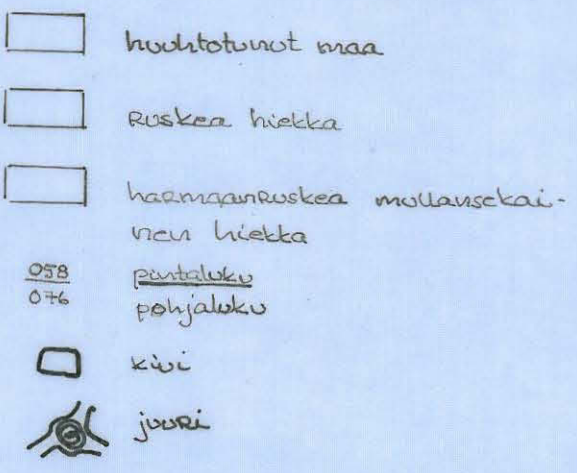 huuhtotunut maa
Ruskea hiekka
harmaanRuskea mullansekai-
nen hiekka
058 pintaluku
076 pohjaluku
kivi
juuRi